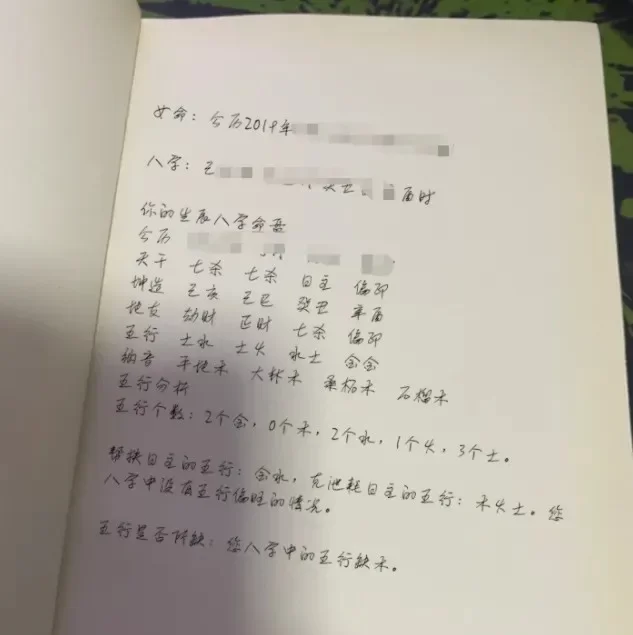 女命：公历2019年
八字：己 癸丑 酉时
你的生辰八字命盘
公历
天干 七杀 七杀 日主 偏印
坤造 己亥 己巳 癸丑 辛酉
地支 劫财 正财 七杀 偏印
五行 土水 土火 水土 金金
纳音 平地木 大林木 桑柘木 石榴木
五行分析
五行个数：2个金，0个木，2个水，1个火，3个土。
帮扶日主的五行：金水，克泄耗日主的五行：木火土。您
八字中没有五行偏旺的情况。
五行是否所缺：您八字中的五行缺木。